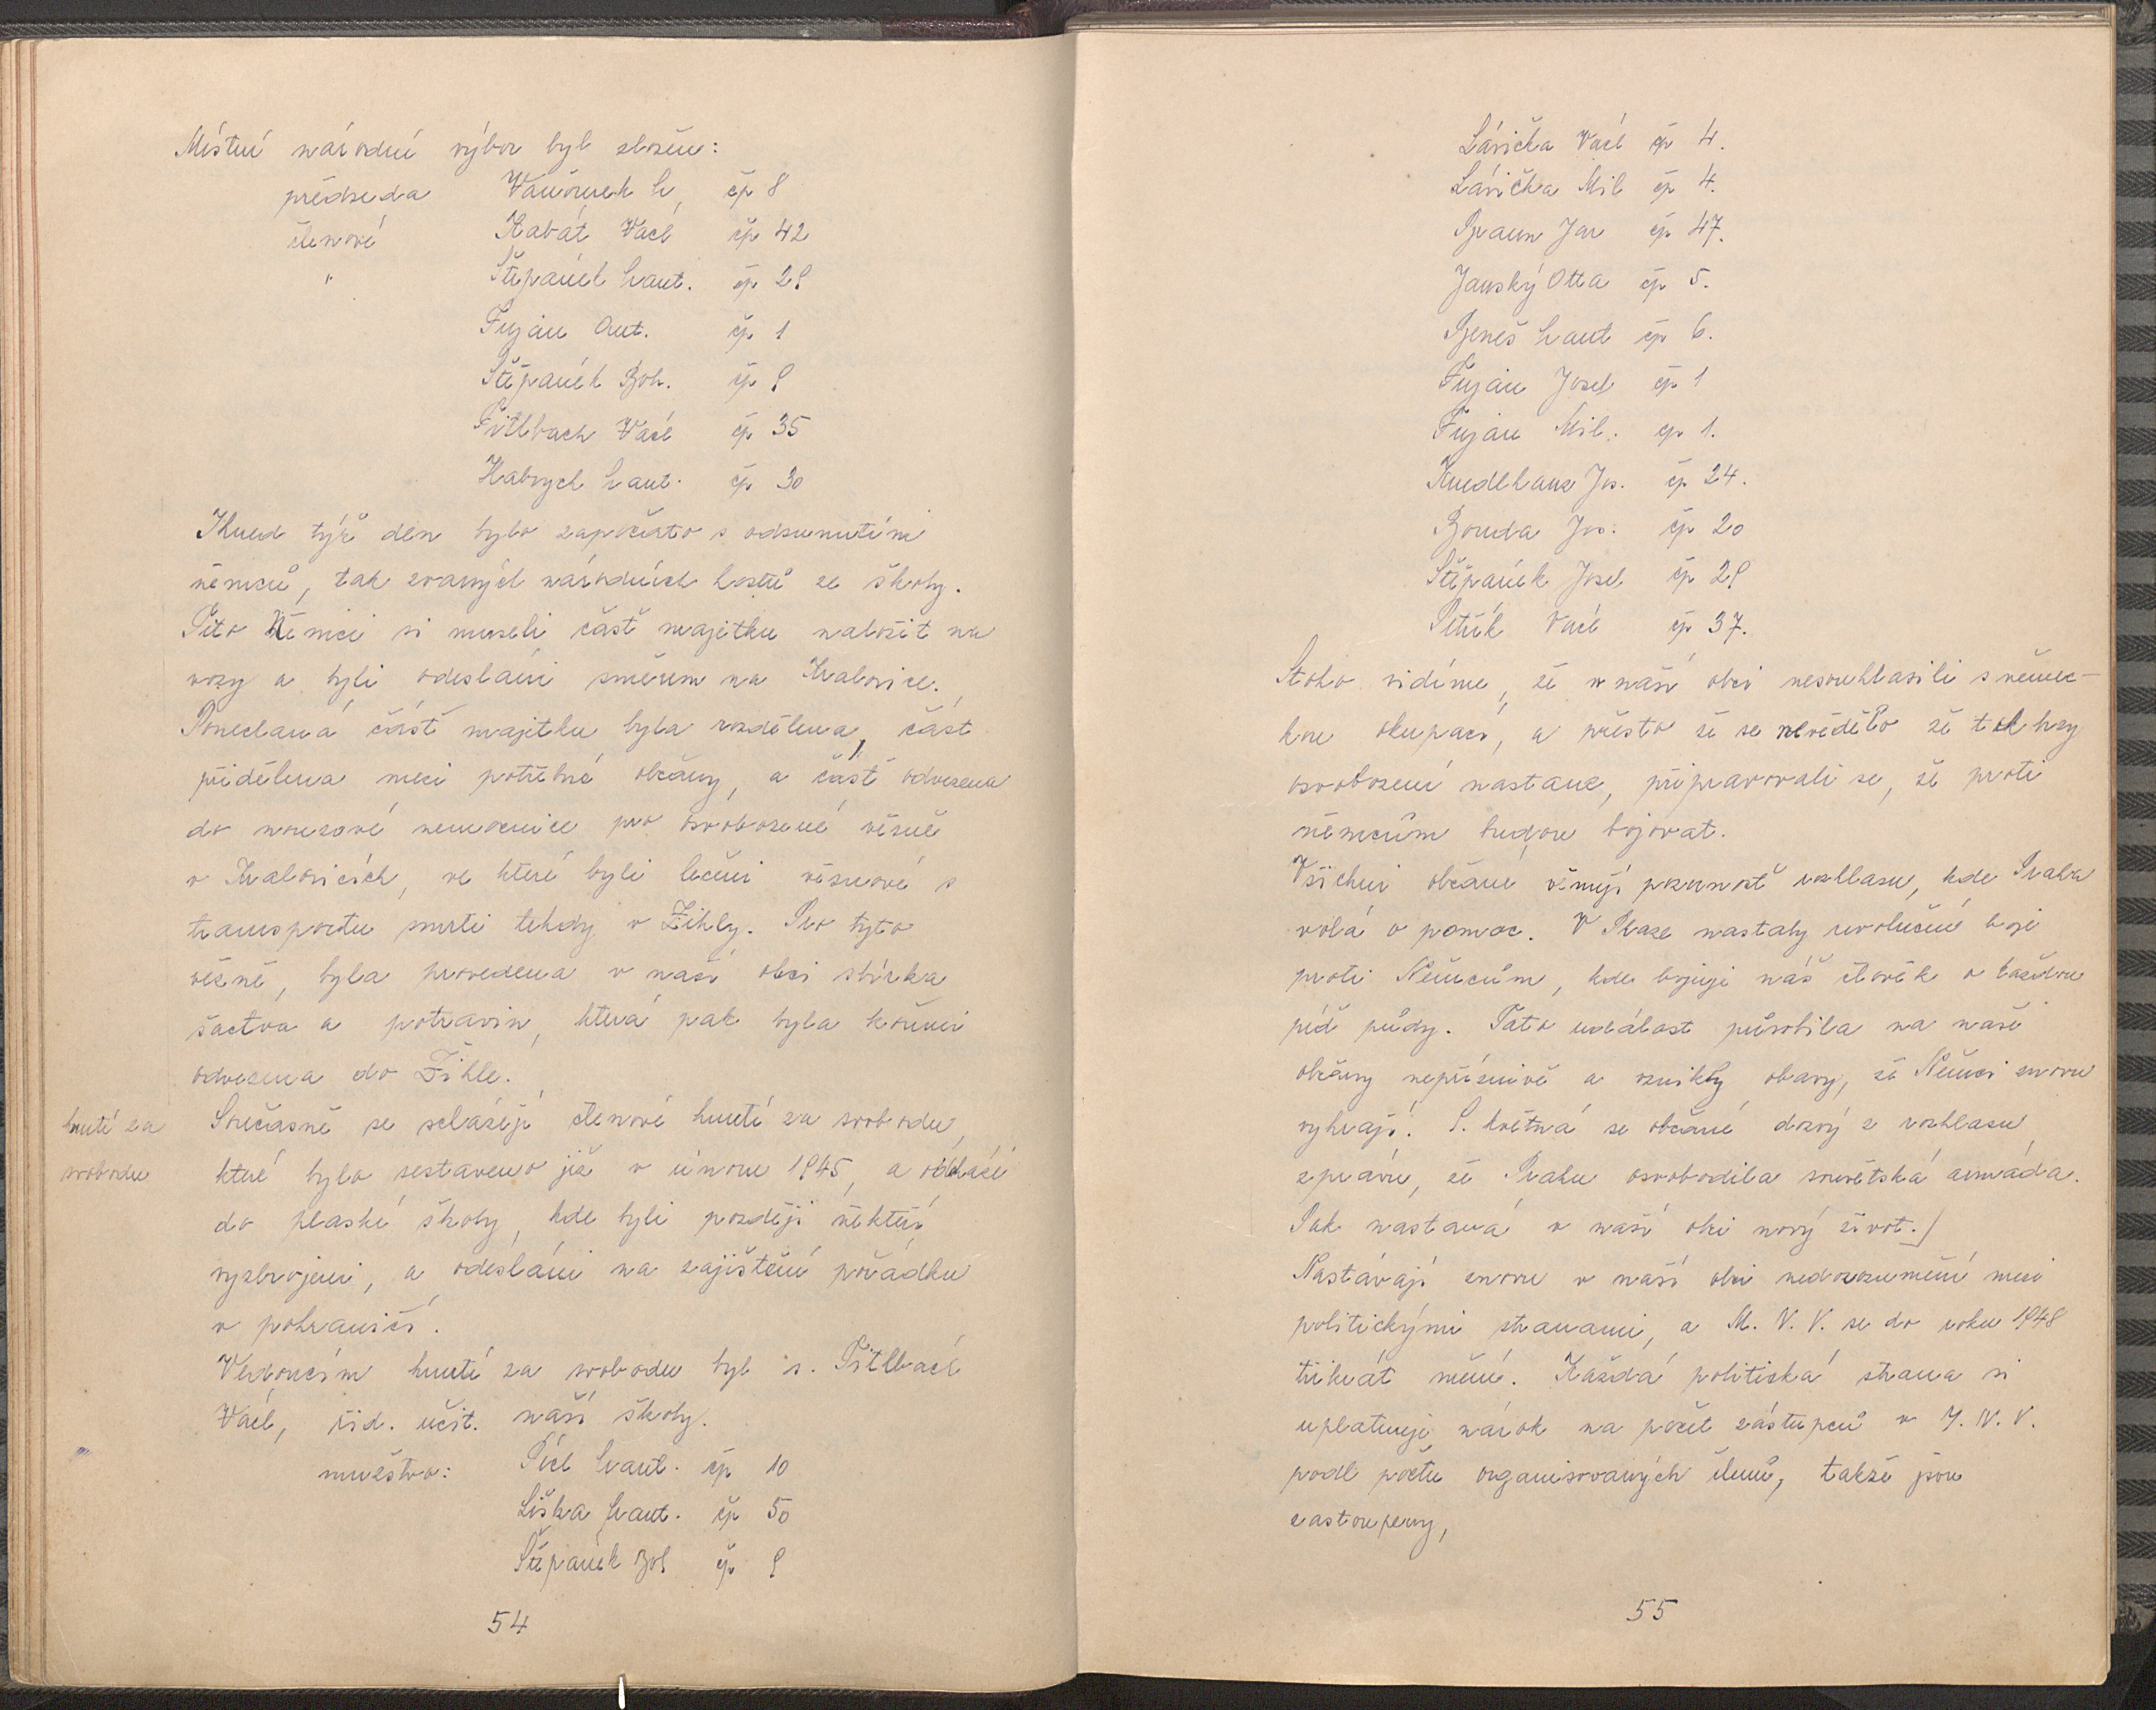 Místní národní výbor byl složen:
předseda Vaněurek L, čp 8
členové Kabát Václ čp 42
" Štěpánek Frant. čp 29
Fuján Ant. čp 1
Štěpánek Boh. čp 9
Václ čp 35
Habrych Frant. čp 30
Ihned týž den bylo započato s odsunutím
němců, tak zvaných národních hostů ze školy.
Tito Němci si museli část majetku naložit na
vozy a byli odesláni směrem na Kralovice.
Ponechaná část majetku byla rozdělena, část
přidělena mezi potřebné občany, a část odvezena
do nouzové nemocnice pro osvobozené vězně
v Kralovicích, ve které byli léčeni vězňové s
transportu smrti tehdy v Žihly. Pro tyto
vězně, byla provedena v naší obci sbírka
šactva a potravin, která pak byla koňmi
odvezena do Žihle.
hnutí za
svobodu
Současně se scházejí členové hnutí za svobodu,
které bylo sestaveno již v únoru 1945, a odchází
do plaské školy, kde byli později někteří
vyzbrojeni, a odesláni na zajištění pořádku
v pohraničí.
Vedoucím hnutí za svobodu byl s. Titlbach
Václ, říd. učit. naší školy.
mužstvo: Pícl Frant. čp 10
Liška Frant. čp 50
Štěpánek Boh čp 9
54
Lávička Václ čp 4.
Lávička Mil čp 4.
Braun Jar čp 47.
Janský Otta čp 5.
Beneš Frant čp 6.
Fuján Josef čp 1
Fuján Mil. čp 1.
Knedlhans Jos. čp 24.
Bouda Jos. čp 20
Štěpánek Josef čp 29
Petřík Václ čp 37.
Stoho vidíme, že v naší obci nesouhlasili s němec-
kou okupací, a přesto že se nevědělo že tak brzy
osvobození nastane, připravovali se, že proti
němcům budou bojovat.
Všichni občané věnují pozornost rozhlasu, kde Praha
volá o pomoc. V Praze nastaly revoluční boje
proti Němcům, kde bojuje náš člověk o každou
píď půdy. Tato událost působila na naše
občany nepříznivě a vznikly obavy, že Němci znovu
vyhrají. 9. května se občané dozví z rozhlasu,
zprávu, že Prahu osvobodila sovětská armáda.
Pak nastává v naší obci nový život.)
Nastávají znovu v naší obci nedorozumění mezi
politickými stranami, a M. N. V. se do roku 1948
třikrát mění. Každá politická strana si
uplatňuje nárok na počet zástupců v M. N. V.
podle počtu organisovaných členů, takže jsou
zastoupeny,
55